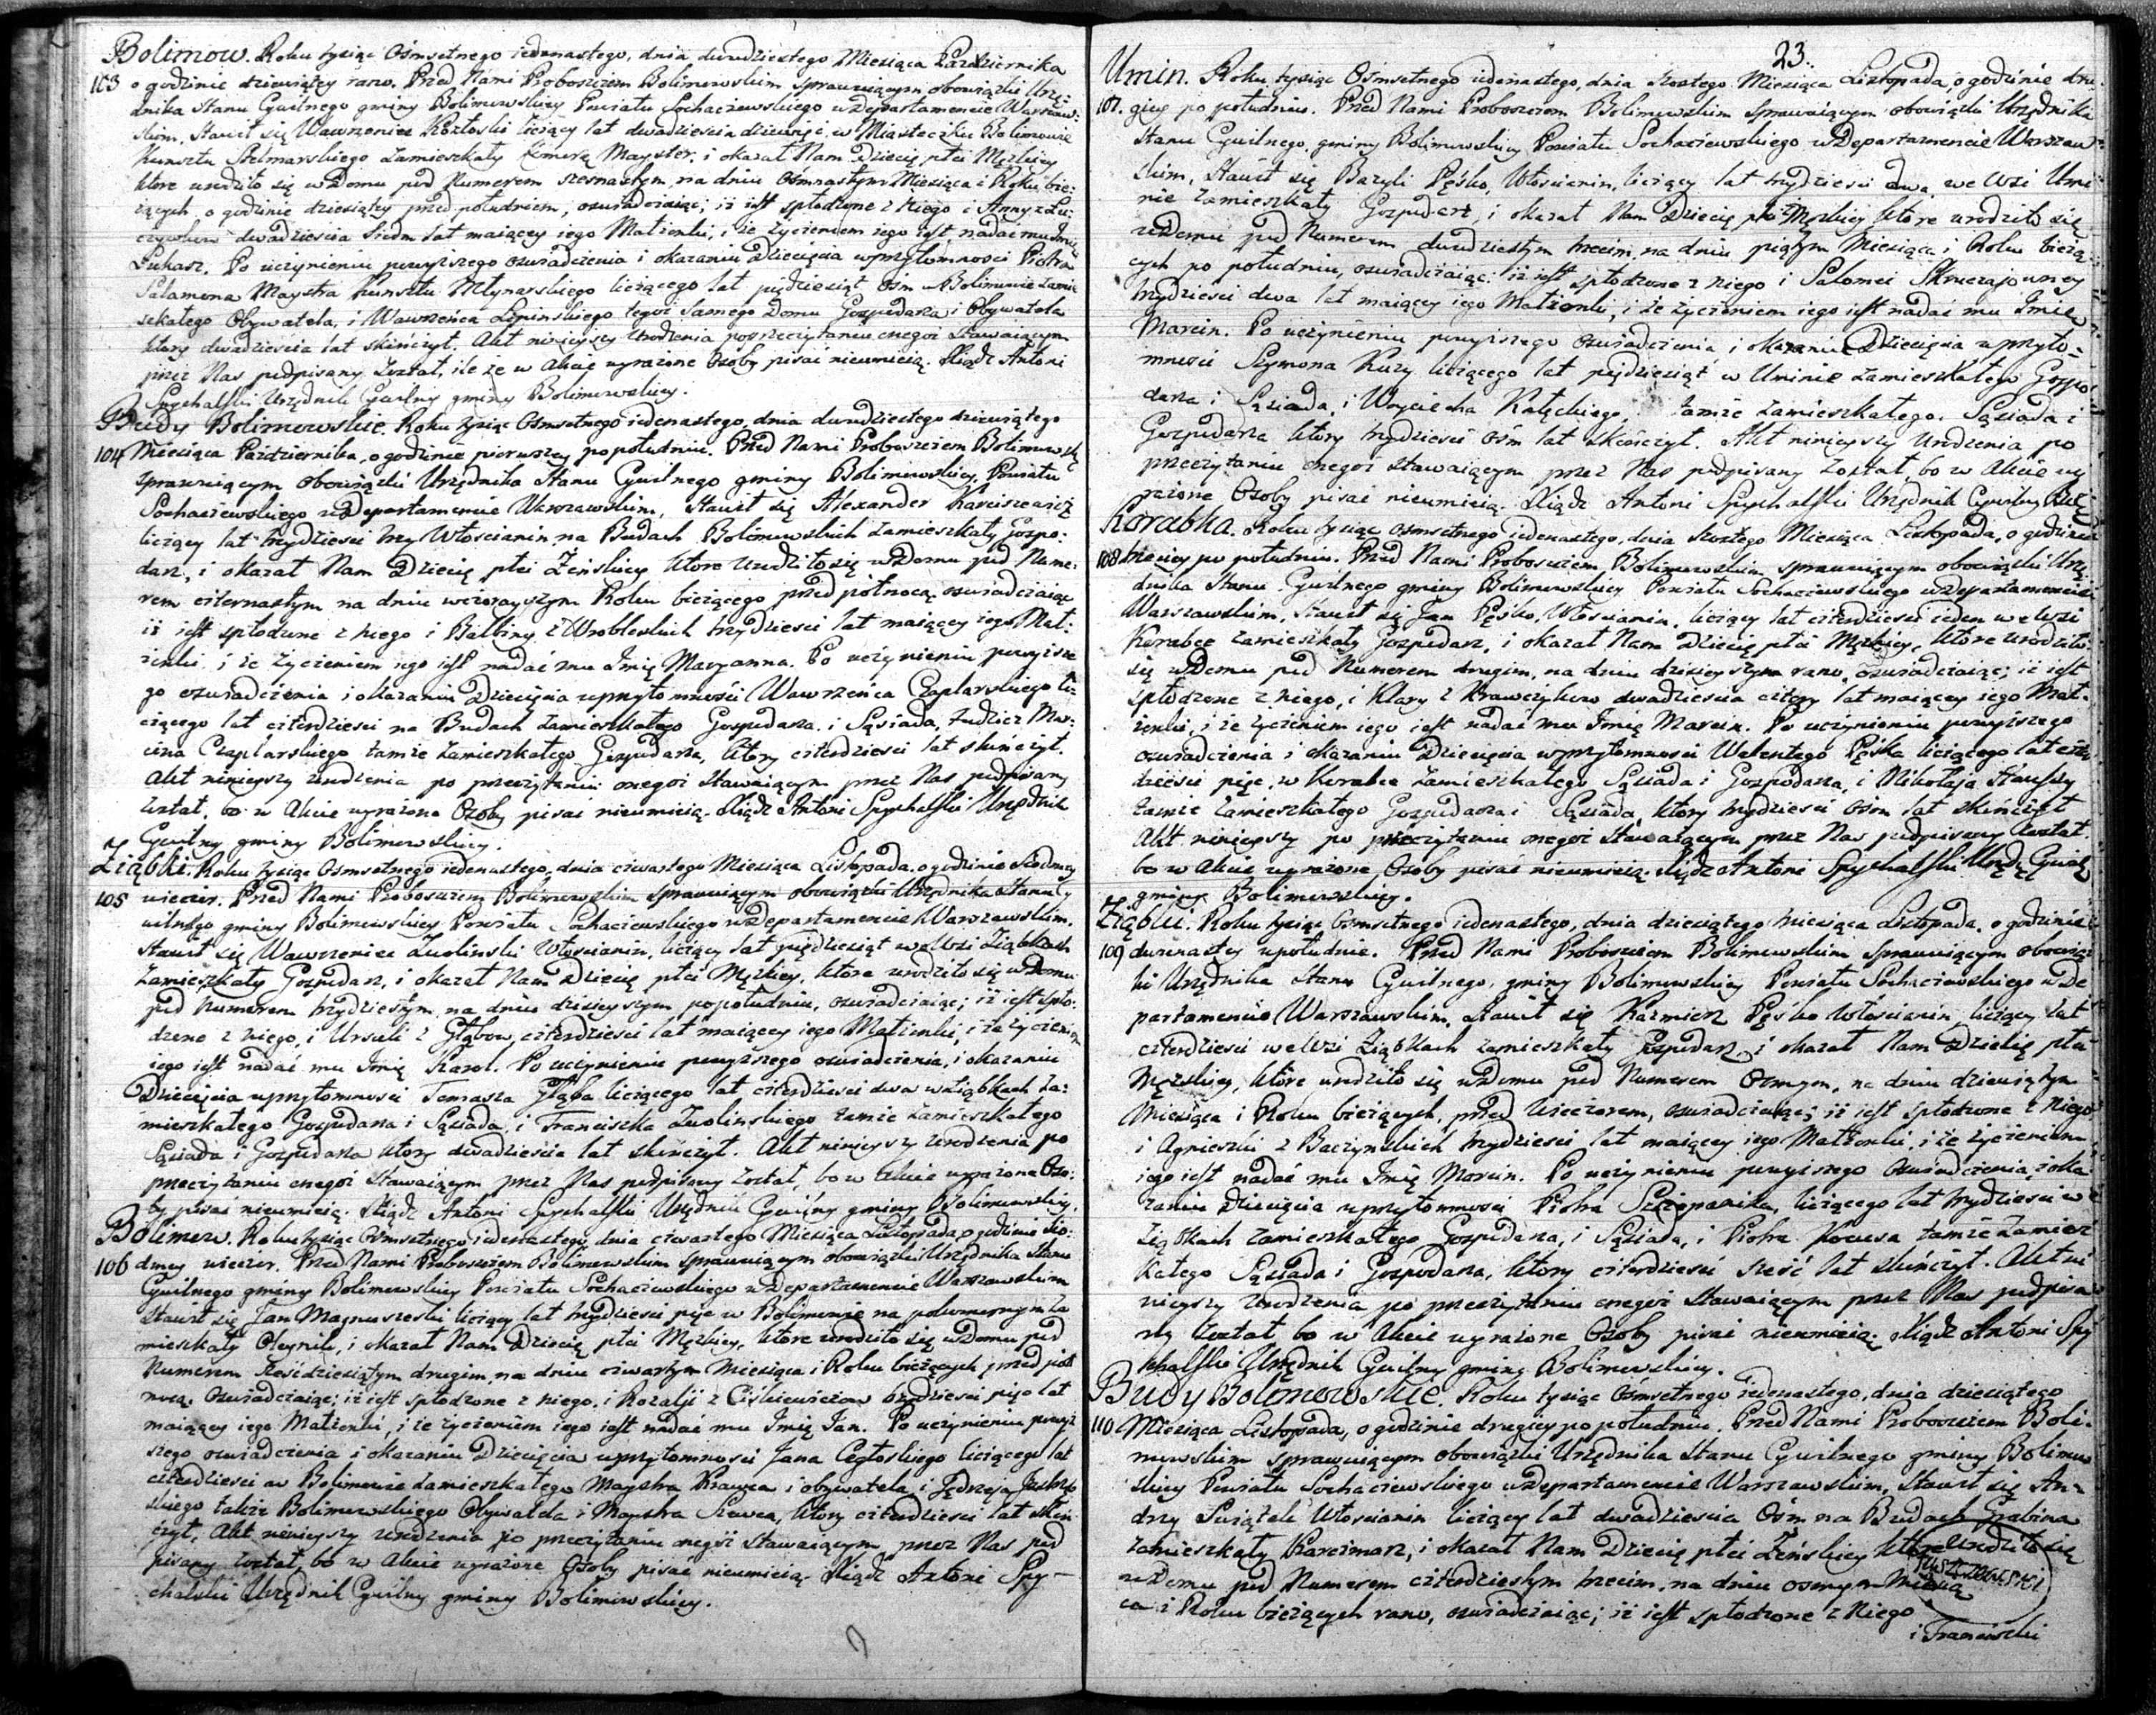 Bolimow. Roku tysiąc Ośmsetnego iedenastego, dnia dwudziestego Miesiąca Października
103 o godzinie dziewiątey rano. Przed Nami Proboszczem Bolimowskim sprawuiącym obowiązki Urzę-
dnika Stanu Cywilnego gminy Bolimowskiey Powiatu Sochaczewskiego w Departamencie Warszaw-
skim, Stawił się Wawrzeniec Kozłoski liczący lat dwadzieścia dziewięć, w Miasteczku Bolimowie
Kunsztu Stelmarskiego zamieszkały Mayster, i okazał Nam Dziecię płci Męzkiey
które urodziło się w Domu pod Numerem szesnastym, na dniu Ośmnastym Miesiąca i Roku bie-
żących o godzinie dziesiątey przed południem, oswiadczaiąc; iż iest spłodzone z Niego i Anny z
dwadzieścia siedm lat maiącey iego Małżonki, i że życzeniem iego iest nadać mu Imię
Łukasz. Po uczynieniu powyższego oswiadczenia i okazaniu Dziecięcia w przytomności Piotra
Salamona Maystra Kunsztu Młynarskiego liczącego lat pięćdziesiąt ośm w Bolimowie zamie-
szkałego Obywatela, i Wawrzeńca Lipinskiego tegoż samego Domu Gospodarza i Obywatela
który dwadzieścia lat skończył. Akt ninieyszy Urodzenia po przeczytaniu onegoż Stawaiącym
przez Nas podpisany Został, ile że w Akcie wyrażone Osoby pisać nieumieią. Xiądz Antoni
Spychalski Urzędnik Cywilny gminy Bolimowskiey.
Budy Bolimowskie. Roku tysiąc Ośmsetnego iedenastego, dnia dwudziestego dziewiątego
104 Miesiąca Października, o godzinie pierwszey popołudniu. Przed Nami Proboszczem Bolimowskim
sprawuiącym obowiązki Urzędnika Stanu Cywilnego gminy Bolimowskiey, Powiatu
Sochaczewskiego w Departamencie Warszawskim, Stawił się Alexander
liczący lat trzydzieści trzy Włościanin, na Budach Bolimowskich zamieszkały Gospo-
darz, i okazał Nam Dziecię płci Żeńskiey które Urodziło się w Domu pod Nume-
rem czternastym na dniu wczorayszym Roku bieżącego przed północą, oswiadczaiąc
iż iest spłodzone z Niego i Balbiny z Wroblewskich trzydzieści lat maiącey iego Mał-
żonki, i że życzeniem iego iest nadać mu Imię Maryanna. Po uczynieniu powyższe-
go oswiadczenia i okazaniu Dziecięcia w przytomności Wawrzeńca Czaplarskiego li-
czącego lat czterdzieści na Budach zamieszkałego Gospodarza i Sąsiada, tudzież Mar-
cina Czaplarskiego tamże zamieszkałego Gospodarza, który czterdzieści lat skończył.
Akt ninieyszy Urodzenia po przeczytaniu onegoż Stawaiącym przez Nas podpisany
Został, bo w Akcie wyrażone Osoby pisać nieumieią. Xiądz Antoni Spychalski Urzędnik
Cywilny gminy Bolimowskiey.
Ziąbki. Roku tysiąc Ośmsetnego iedenastego, dnia czwartego Miesiąca Listopada, o godzinie siodmey
105 wieczor. Przed Nami Proboszczem Bolimowskim sprawuiącym obowiązki Urzędnika Stanu Cy-
wilnego gminy Bolimowskiey Powiatu Sochaczewskiego w Departamencie Warszawskim.
Stawił się Wawrzeniec Zwolinski Włościanin, liczący lat pięćdziesiąt we Wsi Ziąbkach
zamieszkały Gospodarz, i okazał Nam Dziecię płci Męzkiey, które urodziło się w Domu
pod Numerem trzydziestym, na dniu dzisieyszym popołudniu, oswiadczaiąc; iż iest spło-
dzone z Niego, i Urszuli z Głąbow, czterdzieści lat maiącey iego Małżonki, i że życzeniem
iego iest nadać mu Imię Karol. Po uczynieniu powyższego oswiadczenia, i okazaniu
Dziecięcia w przytomności Tomasza Głąba liczącego lat czterdzieści dwa w Ziąbkach za-
mieszkałego Gospodarza i Sąsiada, i Franciszka Zwolinskiego tamże zamieszkałego
Sąsiada i Gospodarza który dwadzieścia lat skończył. Akt ninieyszy Urodzenia po
przeczytaniu onegoż Stawaiącym przez Nas podpisany Został, bo w Akcie wyrażone Oso-
by pisać nieumieią. Xiądz Antoni Spychalski Urzędnik Cywilny gminy Bolimowskiey.
Bolimow. Roku tysiąc Ośmsetnego iedenastego, dnia czwartego Miesiąca Listopada, o godzinie sio-
106 dmey wieczor. Przed Nami Proboszczem Bolimowskim sprawuiącym obowiązki Urzędnika Stanu
Cywilnego gminy Bolimowskiey Powiatu Sochaczewskiego w Departamencie Warszawskim
Stawił się Jan Magnuszeski liczący lat trzydzieści pięć w Bolimowie na za-
mieszkały Oleynik, i okazał Nam Dziecię płci Męzkiey, które urodziło się w Domu pod
Numerem Sześćdziesiątym drugim, na dniu czwartym Miesiąca i Roku bieżących przed pół
nocą. Oswiadczaiąc; iż iest spłodzone z Niego, i Rozalii z trzydzieści pięć lat
maiącey iego Małżonki, i że życzeniem iego iest nadać mu Imię Jan. Po uczynieniu powyż-
szego oswiadczenia i okazaniu Dziecięcia w przytomności Jana Cegłoskiego liczącego lat
czterdzieści w Bolimowie zamieszkałego Maystra Krawca i obywatela, i Jędrzeja
skiego także Bolimowskiego Obywatela i Maystra Szewca, który czterdzieści lat skoń-
czył. Akt ninieyszy Urodzenia po przeczytaniu onegoż Stawaiącym przez Nas pod
pisany Został, bo w Akcie wyrażone Osoby pisać nieumieią. Xiądz Antoni Spy-
chalski Urzędnik Cywilny gminy Bolimowskiey.
23.
Umin. Roku tysiąc Ośmsetnego iedenastego, dnia szostego Miesiąca Listopada, o godzinie dru-
107. giey po południu. Przed Nami Proboszczem Bolimowskim sprawuiącym obowiązki Urzędnika
Stanu Cywilnego, gminy Bolimowskiey Powiatu Sochaczewskiego w Departamencie Warszaw-
skim, Stawił się Bazyli Pęśko, Włościanin, liczący lat trzydzieści dwa we Wsi Umi
nie zamieszkały Gospodarz, i okazał Nam Dziecię płci Męzkiey które urodziło się
w Domu pod Numerem dwudziestym trzecim, na dniu piątym Miesiąca i Roku bieżą
cych po południu, oswiadczaiąc: iż iest spłodzone z Niego i Salomei
trzydzieści dwa lat maiącey iego Małżonki, i że życzeniem iego iest nadać mu Imię
Marcin. Po uczynieniu powyższego oswiadczenia, i okazaniu Dziecięcia w przyto-
mności Szymona Kuzy liczącego lat pięćdziesiąt w Uminie zamieszkałego Gospo
darza i Sąsiada, i Woyciecha Kołęckiego, tamże zamieszkałego. Sąsiada i
Gospodarza który trzydzieści ośm lat skończył. Akt ninieyszy Urodzenia po
przeczytaniu onegoż Stawaiącym przez Nas podpisany Został, bo w Akcie wy
rażone Osoby pisać nieumieią. Xiądz Antoni Spychalski Urzędnik Cywilny
Korabka. Roku tysiąc Ośmsetnego iedenastego, dnia szostego Miesiąca Listopada, o godzinie
108 trzeciey po południu. Przed Nami Proboszczem Bolimowskim sprawuiącym obowiązki Urzę
dnika Stanu Cywilnego gminy Bolimowskiey Powiatu Sochaczewskiego w Departamencie
Warszawskim, Stawił się Jan Pęśko, Włościanin, liczący lat czterdzieści ieden we Wsi
Korabce zamieszkały Gospodarz, i okazał Nam Dziecię płci Męzkiey, które urodziło
się w Domu pod Numerem drugim, na dniu dzisieyszym rano, oswiadczaiąc; iż iest
spłodzone z Niego, i Klary z Krawczykow dwadzieścia cztery lat maiącey iego Mał-
żonki, i że życzeniem iego iest nadać mu Imię Marcin. Po uczynieniu powyższego
oswiadczenia i okazaniu Dziecięcia w przytomności Walentego Pęśka liczącego lat czter
dzieści pięć, w Korabce zamieszkałego Sąsiada i Gospodarza, i Mikołaja
tamże zamieszkałego Gospodarza i Sąsiada, który trzydzieści ośm lat skończył
Akt ninieyszy po przeczytaniu onegoż Stawaiącym przez Nas podpisany Został.
bo w Akcie wyrażone Osoby pisać nieumieią. Xiądz Antoni Spychalski
gminy Bolimowskiey.
Ziąbki. Roku tysiąc Ośmsetnego iedenastego, dnia dziesiątego Miesiąca Listopada, o godzinie
109 dwunastey w południe. Przed Nami Proboszczem Bolimowskim sprawuiącym obowiąz
ki Urzędnika Stanu Cywilnego, gminy Bolimowskiey Powiatu Sochaczewskiego w De
partamencie Warszawskim, Stawił się Kazmierz Pęśko Włościanin, liczący lat
czterdzieści we Wsi Ziąbkach zamieszkały Gospodarz, i okazał Nam Dziecię płci
Męzkiey, które urodziło się w Domu pod Numerem Osmym, na dniu dziewiątym
Miesiąca i Roku bieżących, przed wieczorem, oswiadczaiąc; iż iest spłodzone z Niego
i Agnieszki z Baczynskich trzydzieści lat maiącey iego Małżonki, i że życzeniem
iego iest nadać mu Imię Marcin. Po uczynieniu powyższego oswiadczenia, i oka
zaniu Dziecięcia w przytomności Piotra Szczepanika, liczącego lat trzydzieści w
Ziąbkach zamieszkałego Gospodarza, i Sąsiada, i Piotra Kocusa tamże zamiesz
kałego Sąsiada i Gospodarza, który czterdzieści sześć lat skończył. Akt ni
nieyszy Urodzenia po przeczytaniu onegoż Stawaiącym przez Nas podpisa
ny Został bo w Akcie wyrażone Osoby pisać nieumieią. Xiądz Antoni Spy
chalski Urzędnik Cywilny gminy Bolimowskiey.
Budy Bolimowskie. Roku tysiąc Ośmsetnego iedenastego, dnia dziesiątego
110 Miesiąca Listopada, o godzinie drugiey po południu. Przed Nami Proboszczem Boli-
mowskim sprawuiącym obowiązki Urzędnika Stanu Cywilnego gminy Bolimow
skiey Powiatu Sochaczewskiego w Departamencie Warszawskim, Stawił się An-
drzy Świątek Włościanin liczący lat dwadzieścia Ośm na Budach Grabina
zamieszkały Karczmarz, i okazał Nam Dziecię płci Żeńskiey które Urodziło się
w Domu pod Numerem czterdziestym trzecim, na dniu osmym Miesią
ca i Roku bieżących rano, oswiadczaiąc; iż iest spłodzone z Niego
i Franciszki